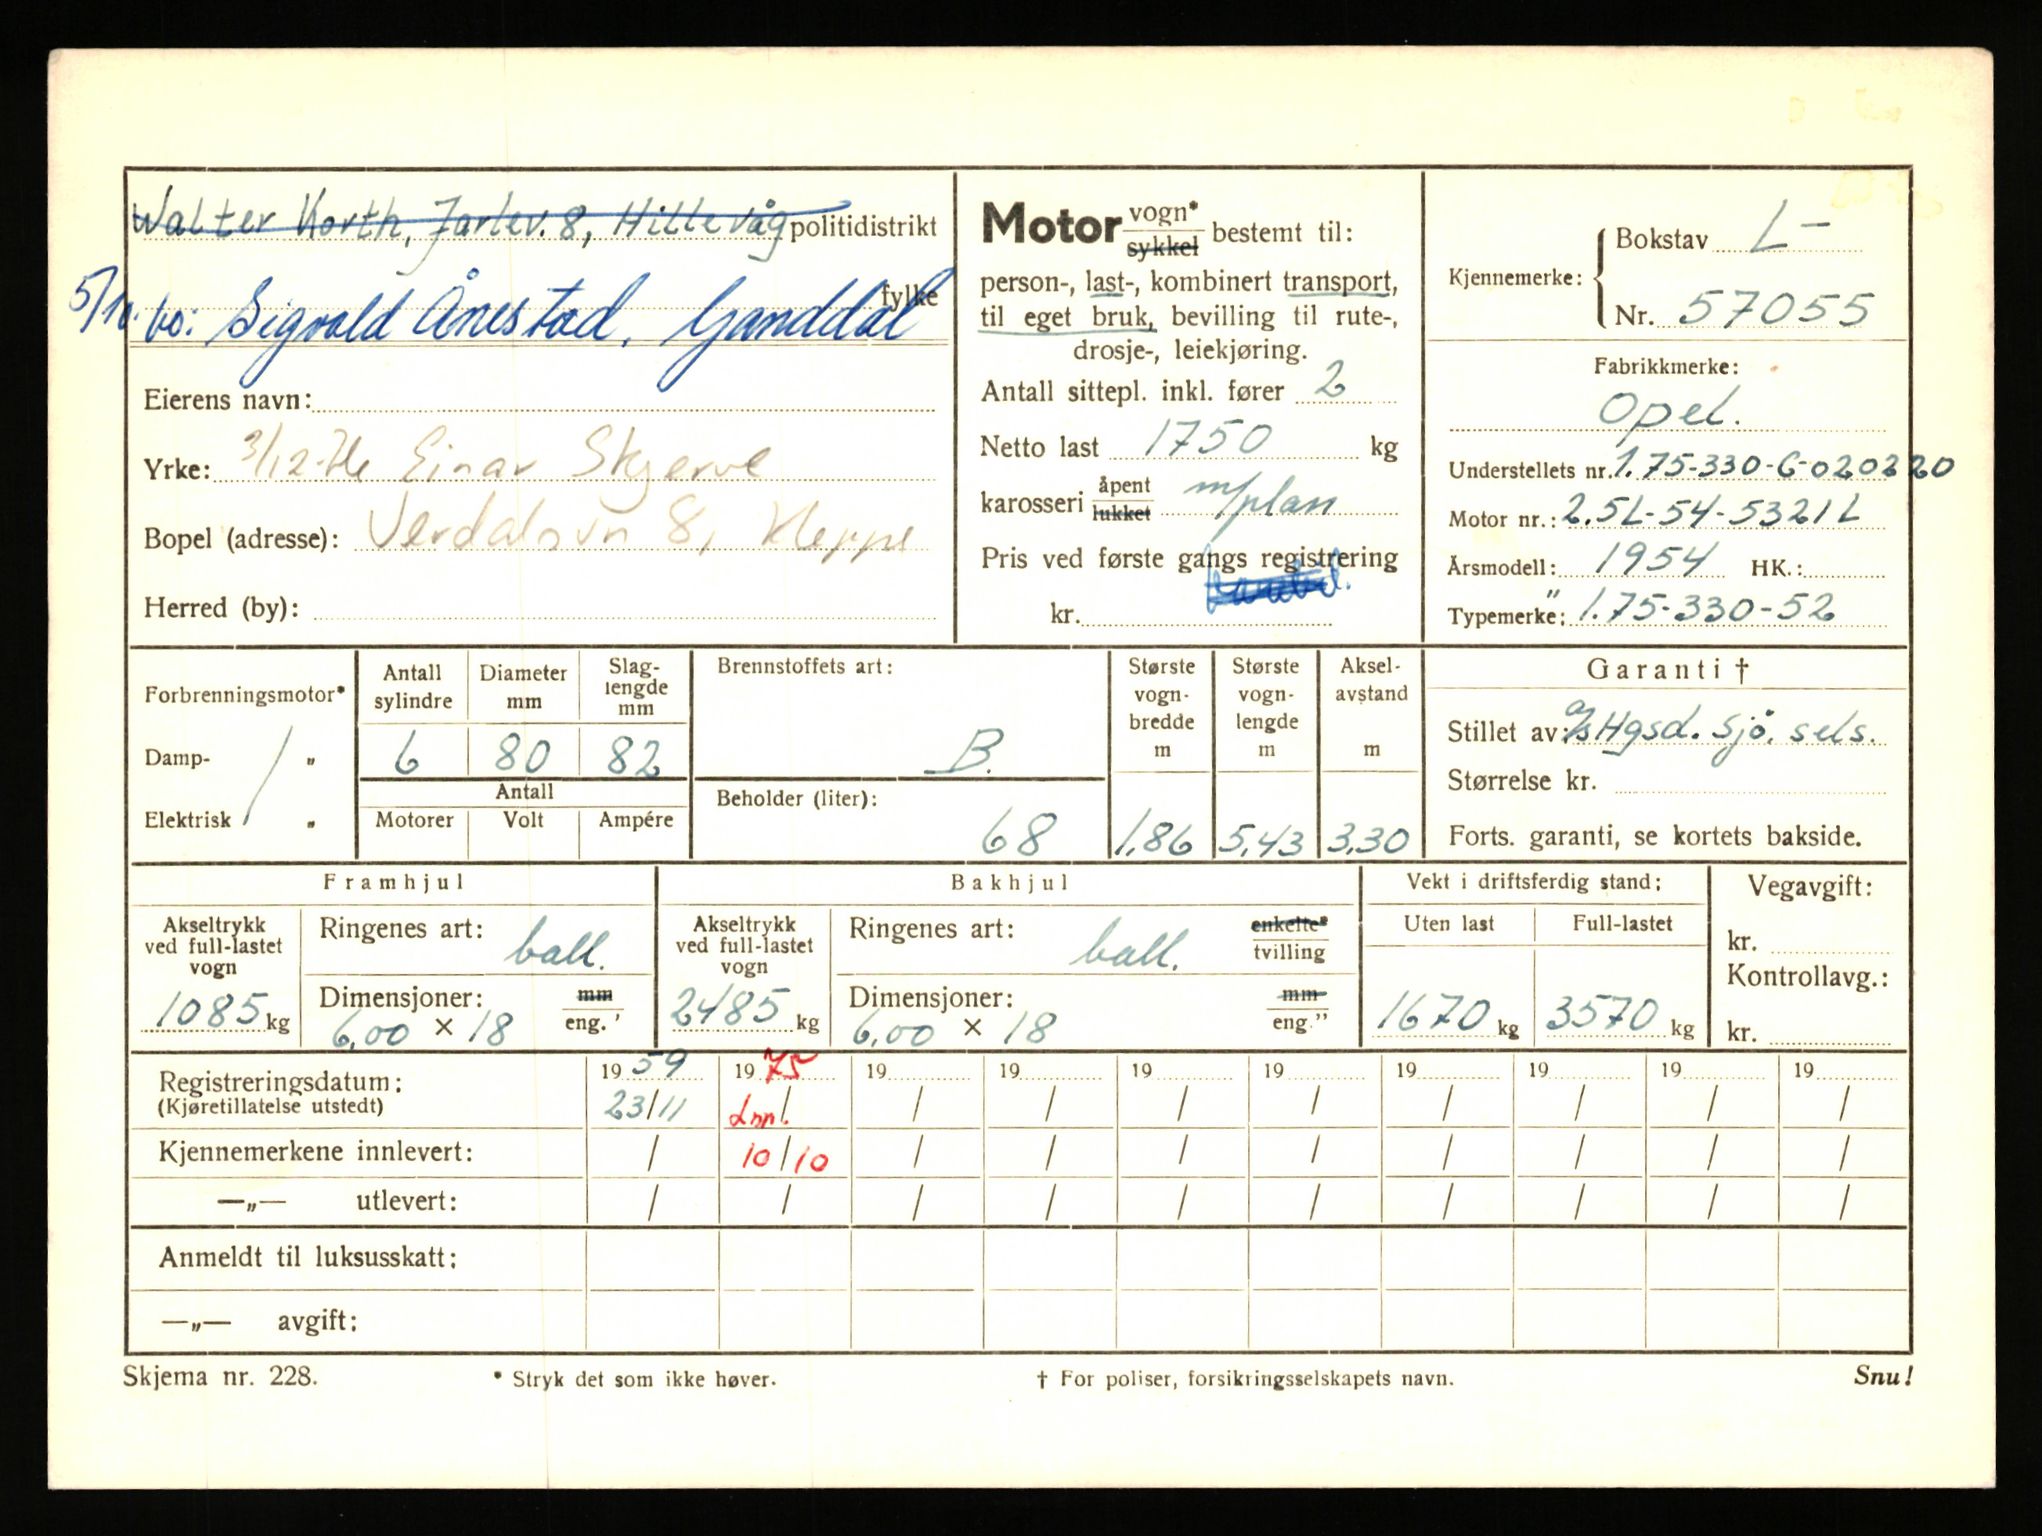 Walter Korth, Jarlev. 8, Hillevåg politidistrikt
5/10. bo: Sigvald Ånestad, Ganddal fylke
Eierens navn:
Yrke: 3/12- Einar Skjerve
Bopel (adresse): Verdalsvn 8, Kleppe
Herred (by):
Motor vogn* sykkel bestemt til:
person-, last-, kombinert transport,
til eget bruk, bevilling til rute-,
drosje-, leiekjøring.
Antall sittepl. inkl. fører 2
Netto last 1750 kg
karosseri åpent lukket m/plan
Pris ved første gangs registrering
kr.
Kjennemerke: Bokstav L-
Nr. 57055
Fabrikkmerke:
Opel.
Understellets nr. 1.75-330-6-020220
Motor nr.: 2.5L-54-5321L
Årsmodell: 1954 HK.:
Typemerke: 1.75-330-52
Forbrenningsmotor*
Damp- "
Elektrisk "
Antall sylindre
6
Diameter mm
80
Slag-lengde mm
82
Antall
Motorer Volt Ampére
Brennstoffets art:
B.
Beholder (liter):
68
Største vogn-bredde m
1,86
Største vogn-lengde m
5,43
Aksel-avstand m
3,30
Garanti †
Stillet av: a/s Hgsd. Sjö. sels.
Størrelse kr.
Forts. garanti, se kortets bakside.
Framhjul
Akseltrykk ved full-lastet vogn
1085 kg
Ringenes art: ball.
Dimensjoner: mm eng. '
6,00 × 18
Bakhjul
Akseltrykk ved full-lastet vogn
2485 kg
Ringenes art: ball. enkelte* tvilling
Dimensjoner: mm eng."
6,00 × 18
Vekt i driftsferdig stand:
Uten last Full-lastet
1670 kg 3570 kg
Vegavgift:
kr.
Kontrollavg.:
kr.
Registreringsdatum: 1959 1975 19 19 19 19 19 19 19 19
(Kjøretillatelse utstedt) 23/11 Innl. / / / / / / / / /
Kjennemerkene innlevert: / 10/10 / / / / / / / /
—„— utlevert: / / / / / / / / / /
Anmeldt til luksusskatt:
—„— avgift:
Skjema nr. 228. * Stryk det som ikke høver. † For poliser, forsikringsselskapets navn. Snu!